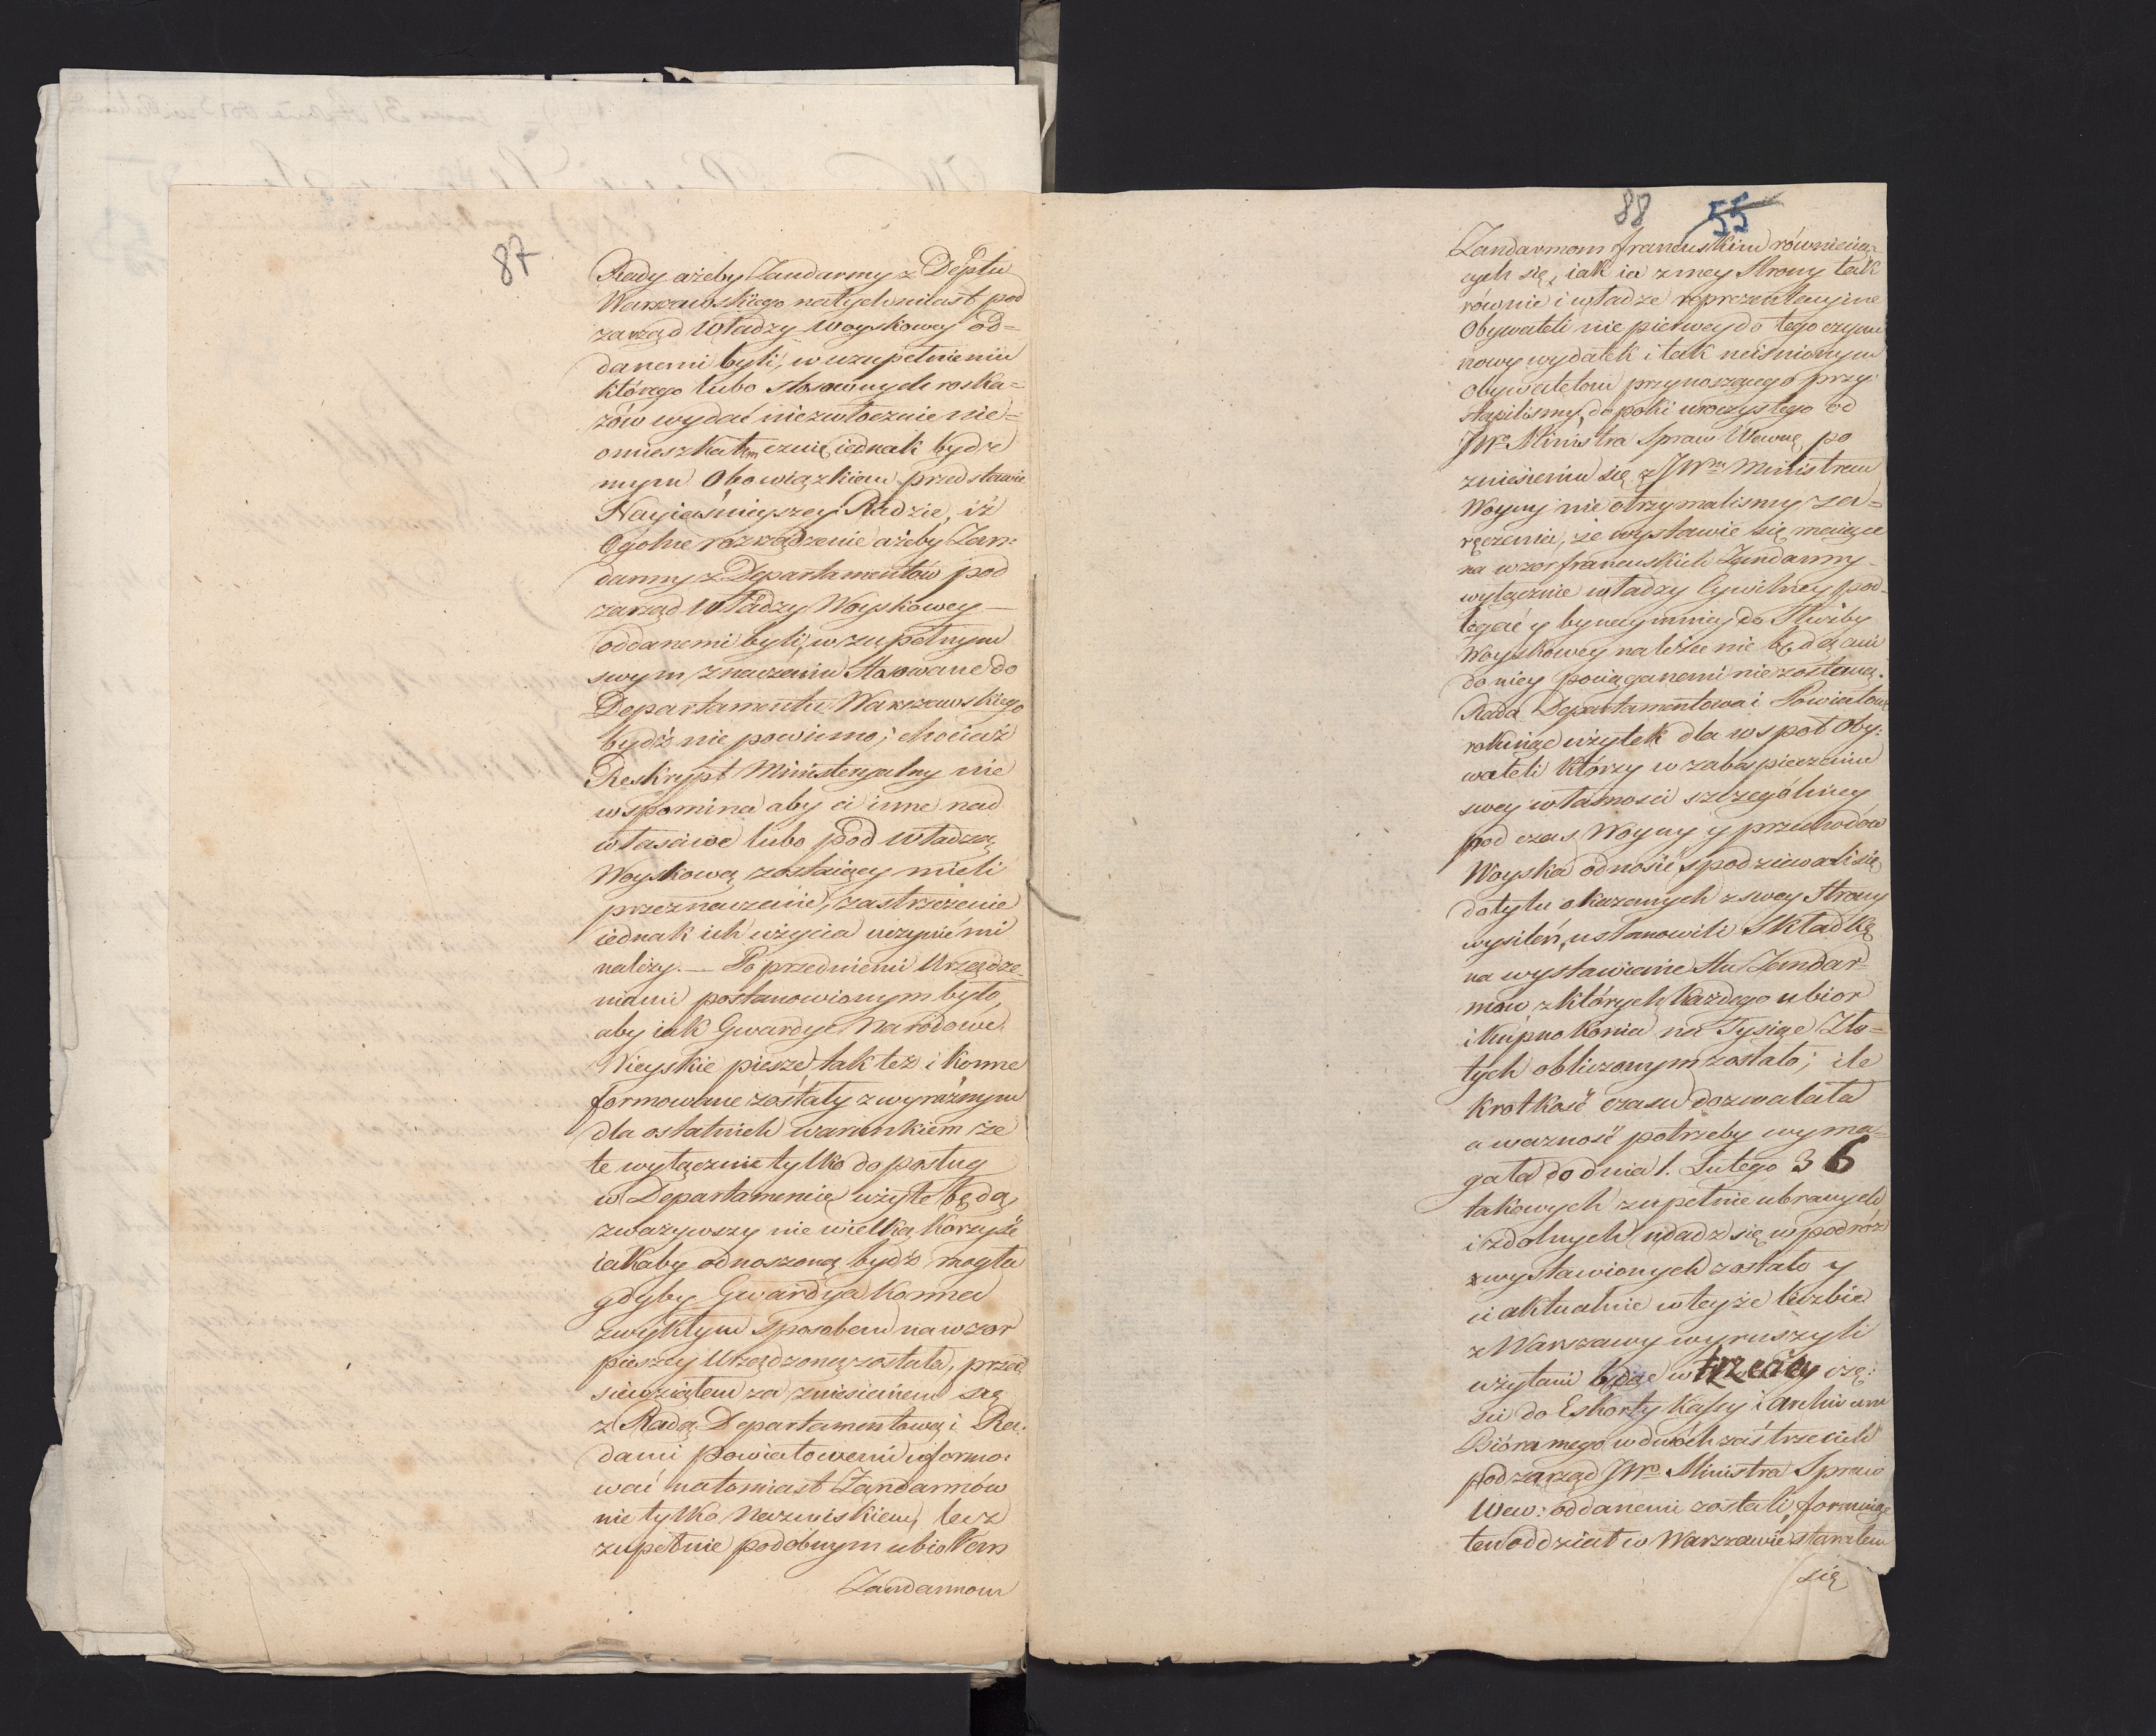 87
Rady ażeby Żandarmy z Deptu
Warszawskiego natychmiast pod
zarząd Władzy Woyskowey od=
danemi byli, w uzupełnieniu
którego lubo stosownych roska=
zów wydać niezwłocznie nie=
omieszkałem czuię iednak bydź
mym Obowiązkiem przedstawić
Nayiaśnieyszey Radzie, iż
Ogolne rozrządzenie ażeby Żan=
darmy z Departamentów pod
zarząd Władzy Woyskowey —
oddanemi byli, w zupełnym
swym znaczeniu stosowane do
Departamentu Warszawskiego
bydź nie powinno; chociaż
Reskrypt Ministeryalny nie
wspomina aby ci inne nad
własciwe lubo pod Władzą
Woyskową zostaiący mieli
przeznaczenie, zastrzeżenie
iednak ich użycia uczynić mi
należy. — Poprzedniemi Urządze=
niami postanowionym było,
aby iak Gwardye Narodowe
Mieyskie piesze, tak też i Konne
formowane zostały z wyraźnym
dla ostatnich warunkiem że
te wyłącznie tylko do posług
w Departamencie użyte będą,
zważywszy nie wielką Korzyść
iakaby odnoszoną bydź mogła
gdyby Gwardya Konna
zwykłym sposobem na wzor
pieszey Urządzoną została, przed
sięwziąłem za zniesieniem się
z Radą Departamentową i Ra=
dami powiatowemi uformo=
wać natomiast Żandarmów
nie tylko Nazwiskiem, lecz
zupełnie podobnym ubiorem
Żandarmom
88 55
Żandarmom francuskim równiaią=
cych się, iak ia z mey Strony tak
równie i władze reprezentacyine
Obywateli nie pierwey do tego czynu
nowy wydatek i tak uciśnionym
Obywatelom przynoszącego przy=
stąpilismy, dopoki uroczystego od
JWo Ministra Spraw Wewnę, po
zniesieniu się z JWm Ministrem
Woyny nie otrzymalismy za=
ręczenia, że wystawić się maiące
na wzor francuskich Żandarmy
wyłącznie władzy Cywilney pod=
legać y bynaymniey do Służby
Woyskowey należec nie będą ani
do niey pociąganemi nie zostaną.
Rada Departamentowa i Powiatowe
rokuiąc użytek dla wspoł Oby=
wateli którzy w zabespieczeniu
swey własnosci szczególniey
podczas Woyny y przechodów
Woyska odnosić spodziewali się
do tylu okazanych z swey Strony
wysileń, ustanowili Składkę
na wystawienie stu Żandar=
mow z których każdego ubior
i kupno Konia na Tysiąc Zło=
tych obliczonym zostało; ile
krotkość czasu dozwalała
a wazność potrzeby wyma=
gała do dnia 1. Lutego 36
takowych zupełnie ubranych
i zdolnych udadz się w podróż
wystawionych zostało y
ci aktualnie w teyże liczbie
z Warszawy wyruszyli
użytemi będąc w trzeciey czę=
sci do Eskorty Kassy i Archiwum
Bióra mego w dwóch zaś trzecich
pod zarząd JWo Ministra Spraw
Wew: oddanemi zostali, formuiąc
ten oddział w Warszawie starałem
się